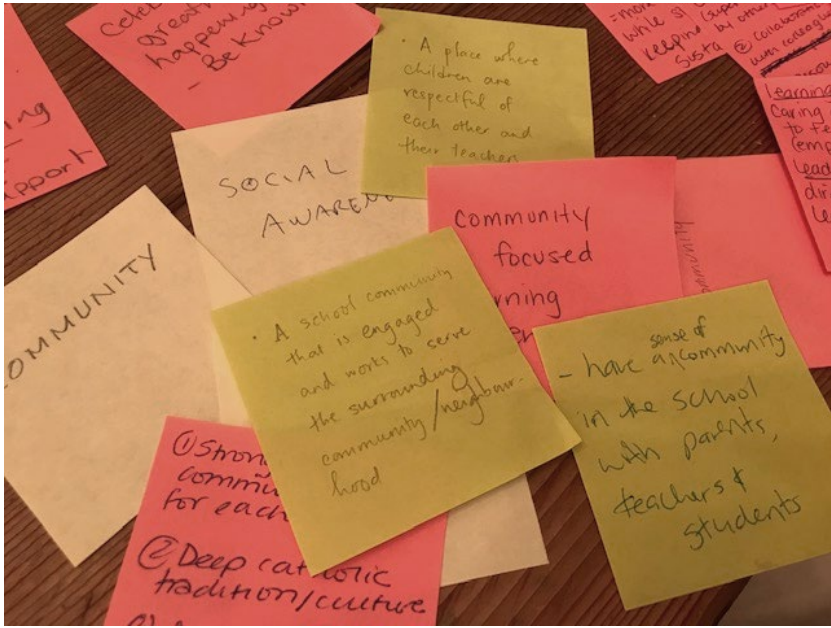 great
happening
- Be Know
pport
· A place where
children are
respectful of
each other and
their teachers
=more
while s
(supe
but othe
② collaborati
with colleagu
susta
learning
caring
to fe
(emp
lead
dir
le
SOCIAL
AWARENE
OMMUNITY
community
focused
rning
· A school community
that is engaged
and works to serve
the surrounding
community/neighbour-
hood
- have a sense of community
in the school
with parents,
teachers &
students
① Stron
commu
for each
② Deep catholic
tradition/culture